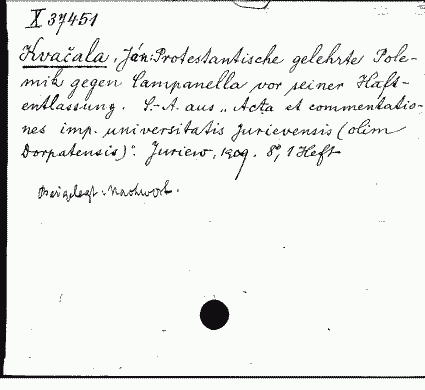 X 37451
Kvačala, Ján: Protestantische gelehrte Pole-
mik gegen Campanella vor seiner Haft-
entlassung. S.-A. aus „Acta et commentatio-
nes imp. universitatis Jurievensis (olim
Dorpatensis)". Juriew, 1909. 8°, 1 Heft
Beigelegt: Nachwort.